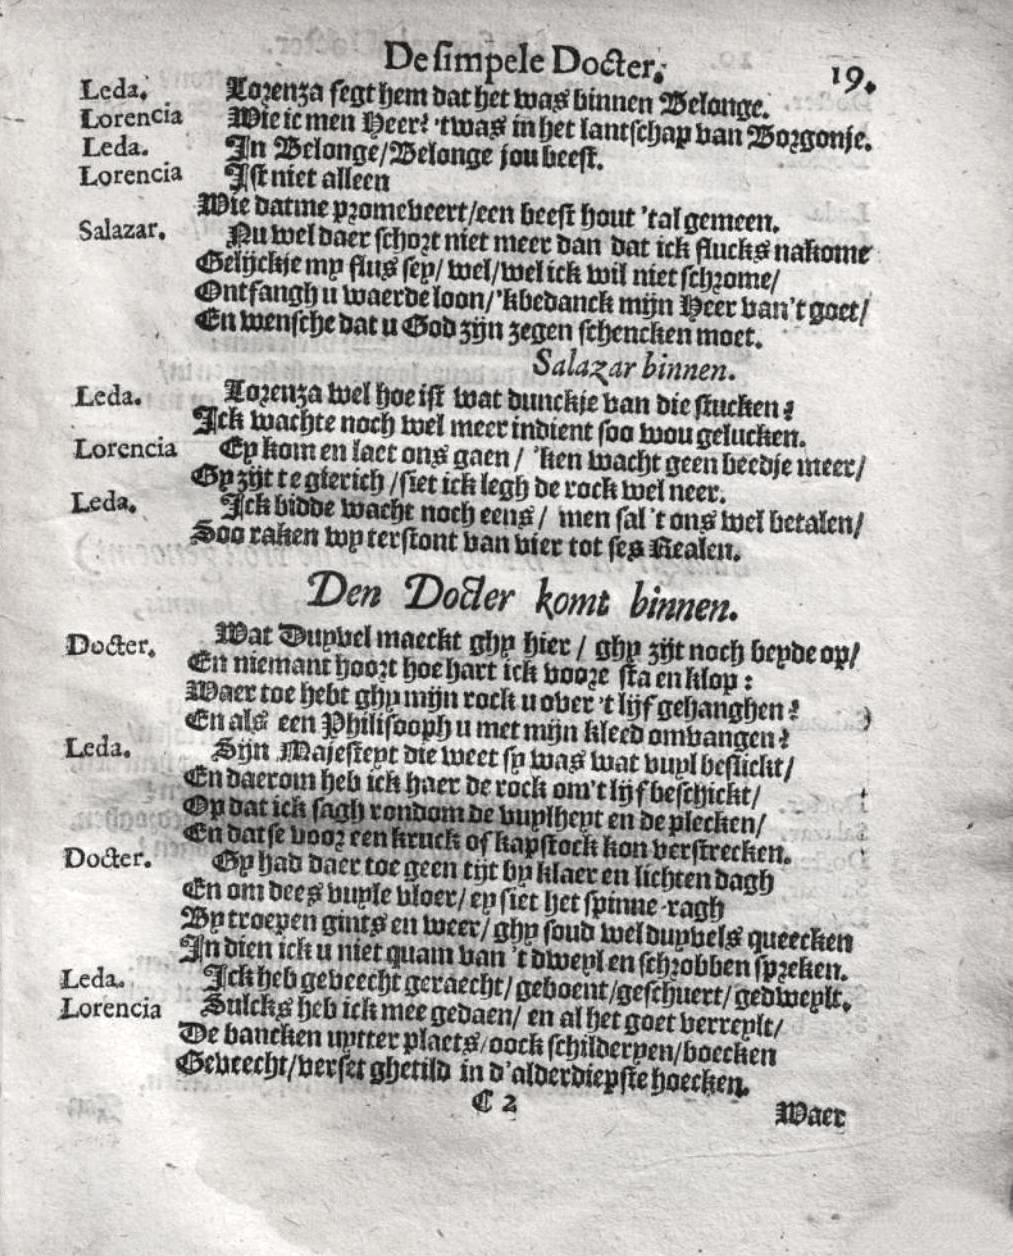 De simpele Docter. 19.
Leda. Lorenza segt hem dat het was binnen Belonge.
Lorencia Wie ic men Heer? 'twas in het lantschap van Borgonje.
Leda. In Belonge/Belonge jou beest.
Lorencia Ist niet alleen
Wie datme promeveert/een beest hout 'tal gemeen.
Salazar. Nu wel daer schort niet meer dan dat ick flucks nakome
Gelijckje my flus sey/ wel/wel ick wil niet schrome/
Ontfangh u waerde loon/'kbedanck mijn Heer van't goet/
En wensche dat u God zijn zegen schencken moet.
Salazar binnen.
Leda. Lorenza wel hoe ist wat dunckje van die stucken?
Ick wachte noch wel meer indient soo wou gelucken.
Lorencia Ey kom en laet ons gaen/ 'ken wacht geen beedje meer/
Gy zijt te gierich/siet ick legh de rock wel neer.
Leda. Ick bidde wacht noch eens/ men sal 't ons wel betalen/
Soo raken wy terstont van vier tot ses Realen.
Den Docter komt binnen.
Docter. Wat Duyvel maeckt ghy hier/ ghy zijt noch beyde op/
En niemant hoort hoe hart ick voore sta en klop:
Waer toe hebt ghy mijn rock u over 't lijf gehanghen?
En als een Philisooph u met mijn kleed omvangen?
Leda. Sijn Majesteyt die weet sy was wat vuyl beslickt/
En daerom heb ick haer de rock om't lijf beschickt/
Op dat ick sagh rondom de vuylheyt en de plecken/
En datse voor een kruck of kapstock kon verstrecken.
Docter. Gy had daer toe geen tijt by klaer en lichten dagh
En om dees vuyle vloer/ ey siet het spinne-ragh
By troepen gints en weer/ ghy soud wel duyvels queecken
In dien ick u niet quam van 't dweyl en schrobben spreken.
Leda. Ick heb geveecht geraecht/ geboent/geschuert/ gedweylt.
Lorencia Sulcks heb ick mee gedaen/ en al het goet verreylt/
De bancken uytter plaets/oock schilderyen/boecken
Geveecht/verset ghetild in d'alderdiepste hoecken.
C 2 Waer